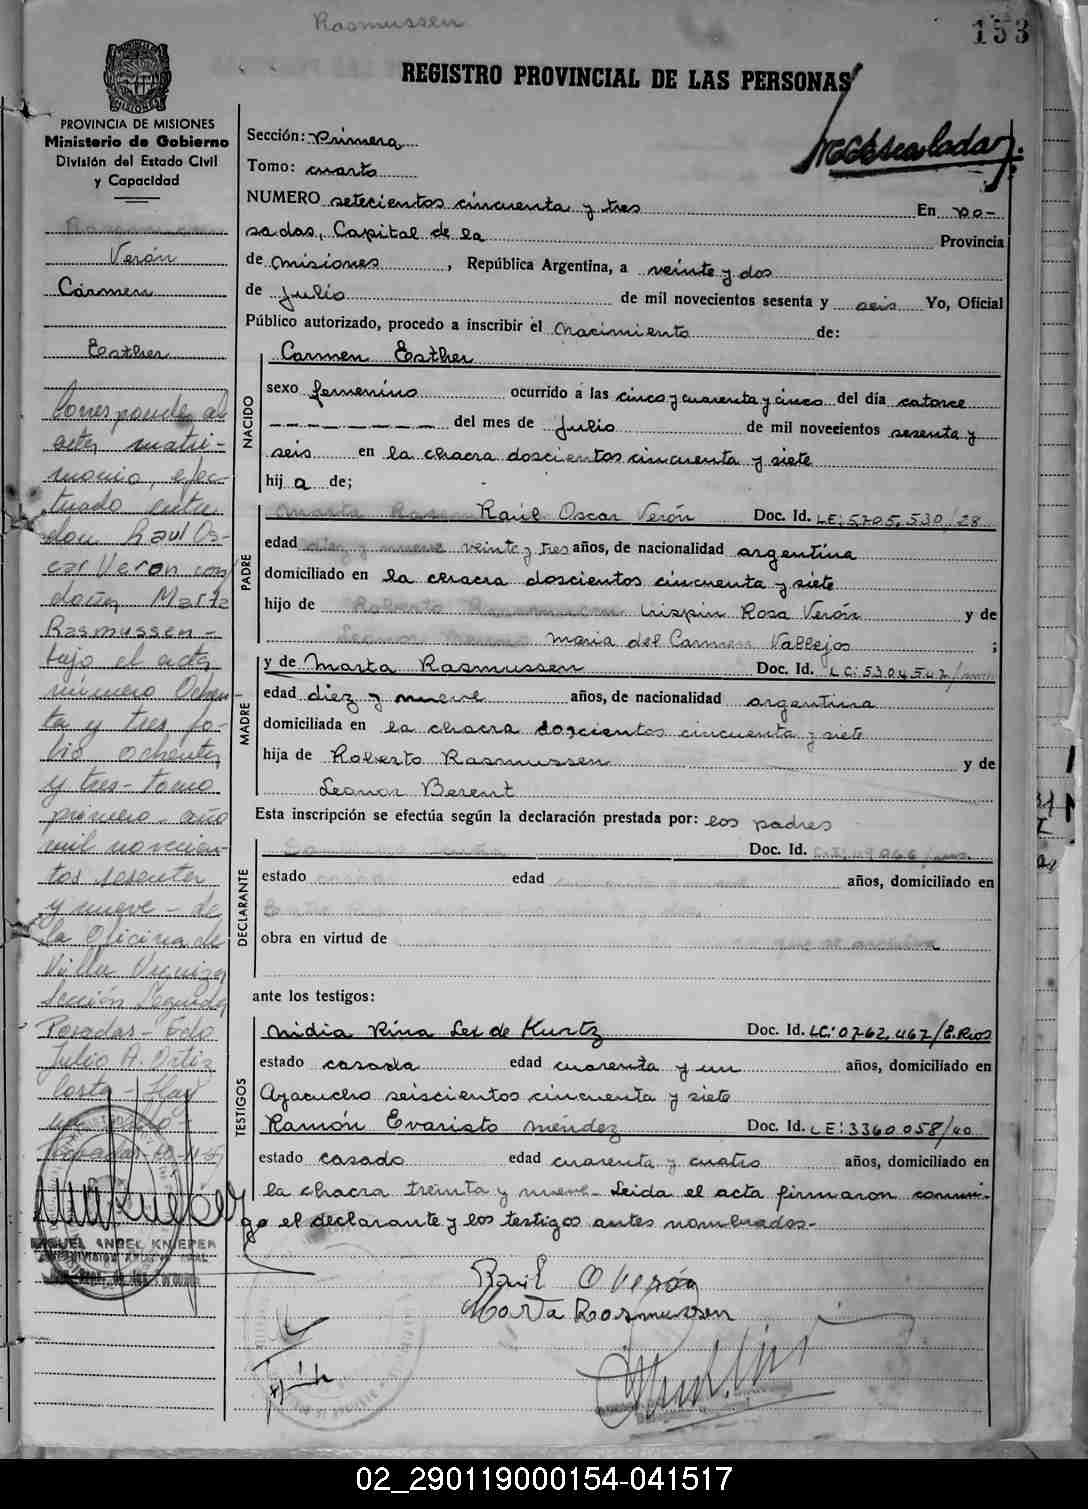 Rasmussen
153
REGISTRO PROVINCIAL DE LAS PERSONAS
PROVINCIA DE MISIONES
Ministerio de Gobierno
División del Estado Civil
y Capacidad
Verón
Carmen
Esther
Corresponde al
acta matri-
monio, efec-
tuado entre
don Raul Os-
car Veron con
doña Marta
Rasmussen -
bajo el acta
número Ochen-
ta y tres fo-
lio ochenta
y tres - tomo
primero - año
mil novecien-
tos sesenta
y nueve - de
la Oficina de
Villa Urquiza
Sección Segunda
Posadas - Fdo
Julio A. Ortiz
Costa - Hay
un sello -
Posadas
MIGUEL ANGEL KNIEPER
Sección: Primera
Tomo: cuarto
NUMERO setecientos cincuenta y tres En Po-
sadas, Capital de la Provincia
de Misiones, República Argentina, a veinte y dos
de Julio de mil novecientos sesenta y seis Yo, Oficial
Público autorizado, procedo a inscribir el Nacimiento de:
NACIDO
Carmen Esther
sexo femenino ocurrido a las cinco y cuarenta y cinco del día catorce
del mes de Julio de mil novecientos sesenta y
seis en la chacra doscientos cincuenta y siete
hij a de;
PADRE
Raúl Oscar Verón Doc. Id. LE: 5.705.530/28
edad veinte y tres años, de nacionalidad argentina
domiciliado en la chacra doscientos cincuenta y siete
hijo de Crispin Rosa Verón y de
Maria del Carmen Vallejos ;
MADRE
y de Marta Rasmussen Doc. Id. LC: 5304547/
edad diez y nueve años, de nacionalidad argentina
domiciliada en la chacra doscientos cincuenta y siete
hija de Roberto Rasmussen y de
Leonor Berent
Esta inscripción se efectúa según la declaración prestada por: los padres
DECLARANTE
Doc. Id.
estado edad años, domiciliado en
obra en virtud de
ante los testigos:
TESTIGOS
Nidia Rina Lex de Kurtz Doc. Id. LC: 0762.467/E.Rios
estado casada edad cuarenta y un años, domiciliado en
Ayacucho seiscientos cincuenta y siete
Ramón Evaristo Méndez Doc. Id. LE: 3360058/40
estado casado edad cuarenta y cuatro años, domiciliado en
la chacra treinta y nueve - Leida el acta firmaron conmi-
go el declarante y los testigos antes nombrados -
Raul O Verón
Marta Rasmussen
02_290119000154-041517